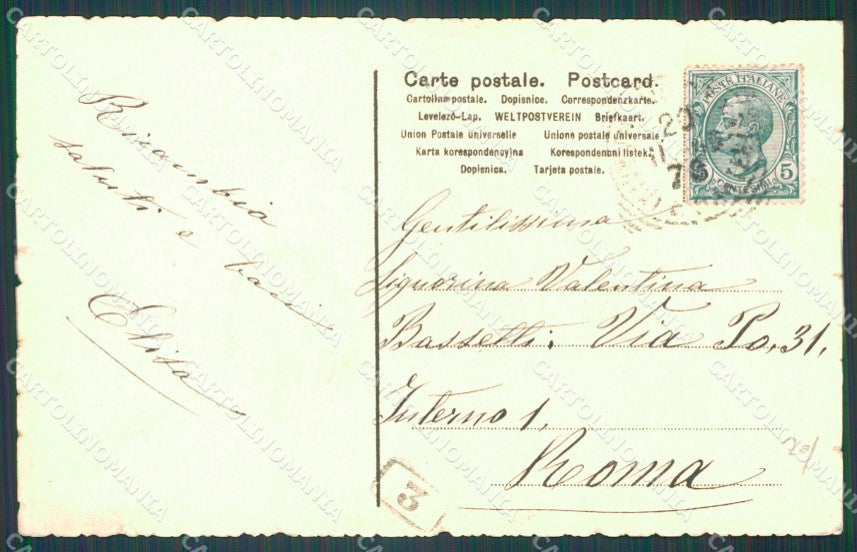 Carte postale. Postcard.
Cartolina postale. Dopisnice. Correspondenzkarte.
Levelező-Lap. WELTPOSTVEREIN Briefkaart.
Union Postale universelle Unione postale universale
Karta korespondencyina Korespondentni listek.
Dopisnica. Tarjeta postale.
POSTE ITALIANE
5
CENTESIMI
20
Ricambia
saluti e baci
Elisa
Gentilissima
Signorina Valentina
Bassetti: Via Po, 31,
Interno 1,
Roma
3
CARTOLINOMANIA